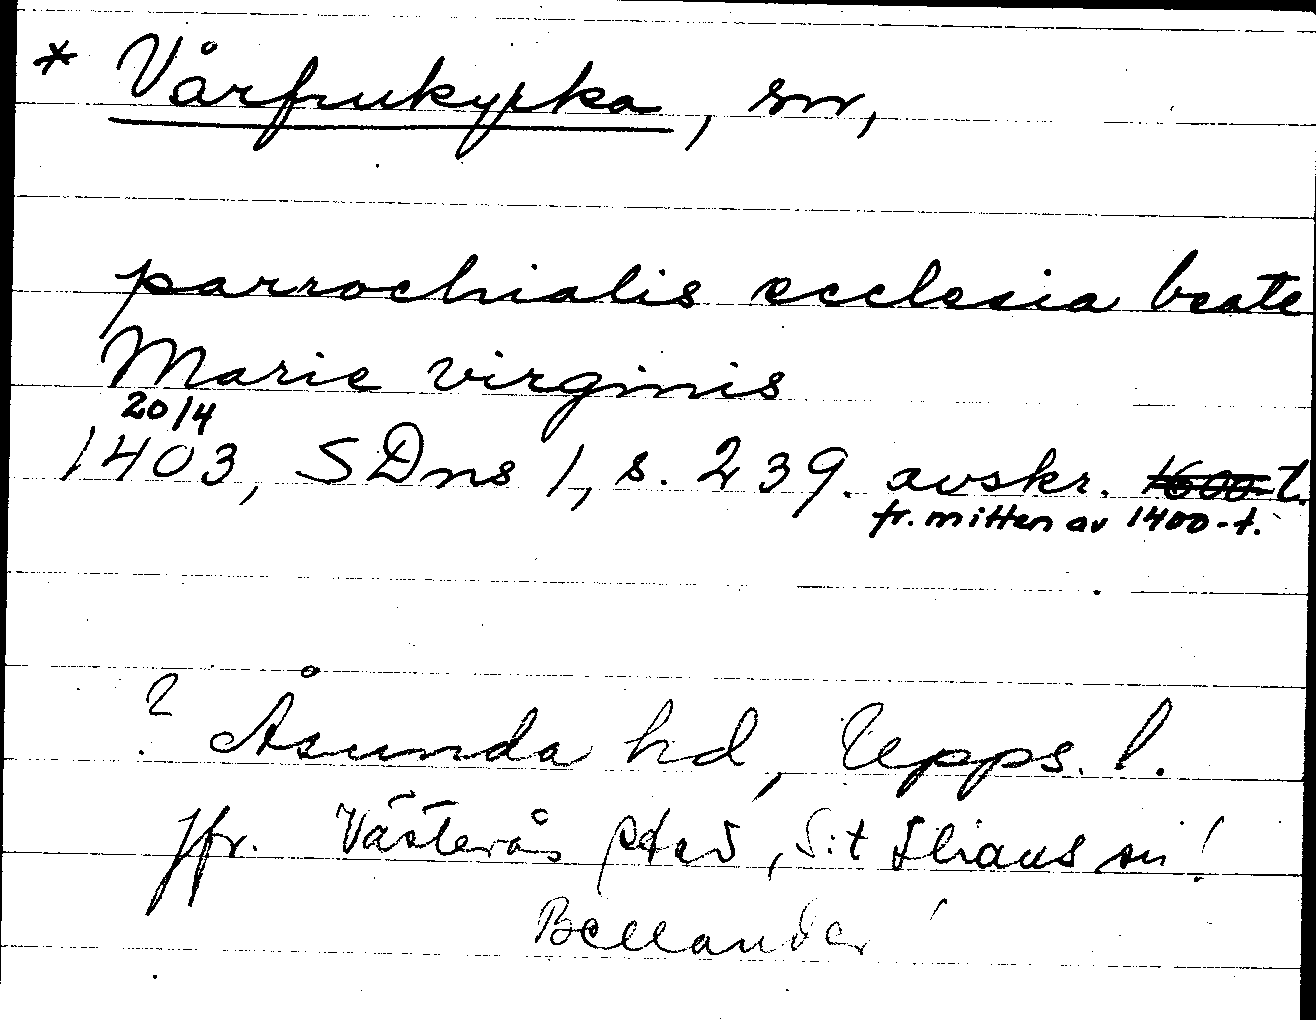 * Vårfrukyrka, sn,
parrochialis ecclesia beate
Marie virginis
20/4
1403, SDns 1, s. 239. avskr. 1600-t.
fr. mitten av 1400-t.
? Åsunda hd, Upps. l.
Jfr. Västerås stad, S:t Ilians sn!
Bellander